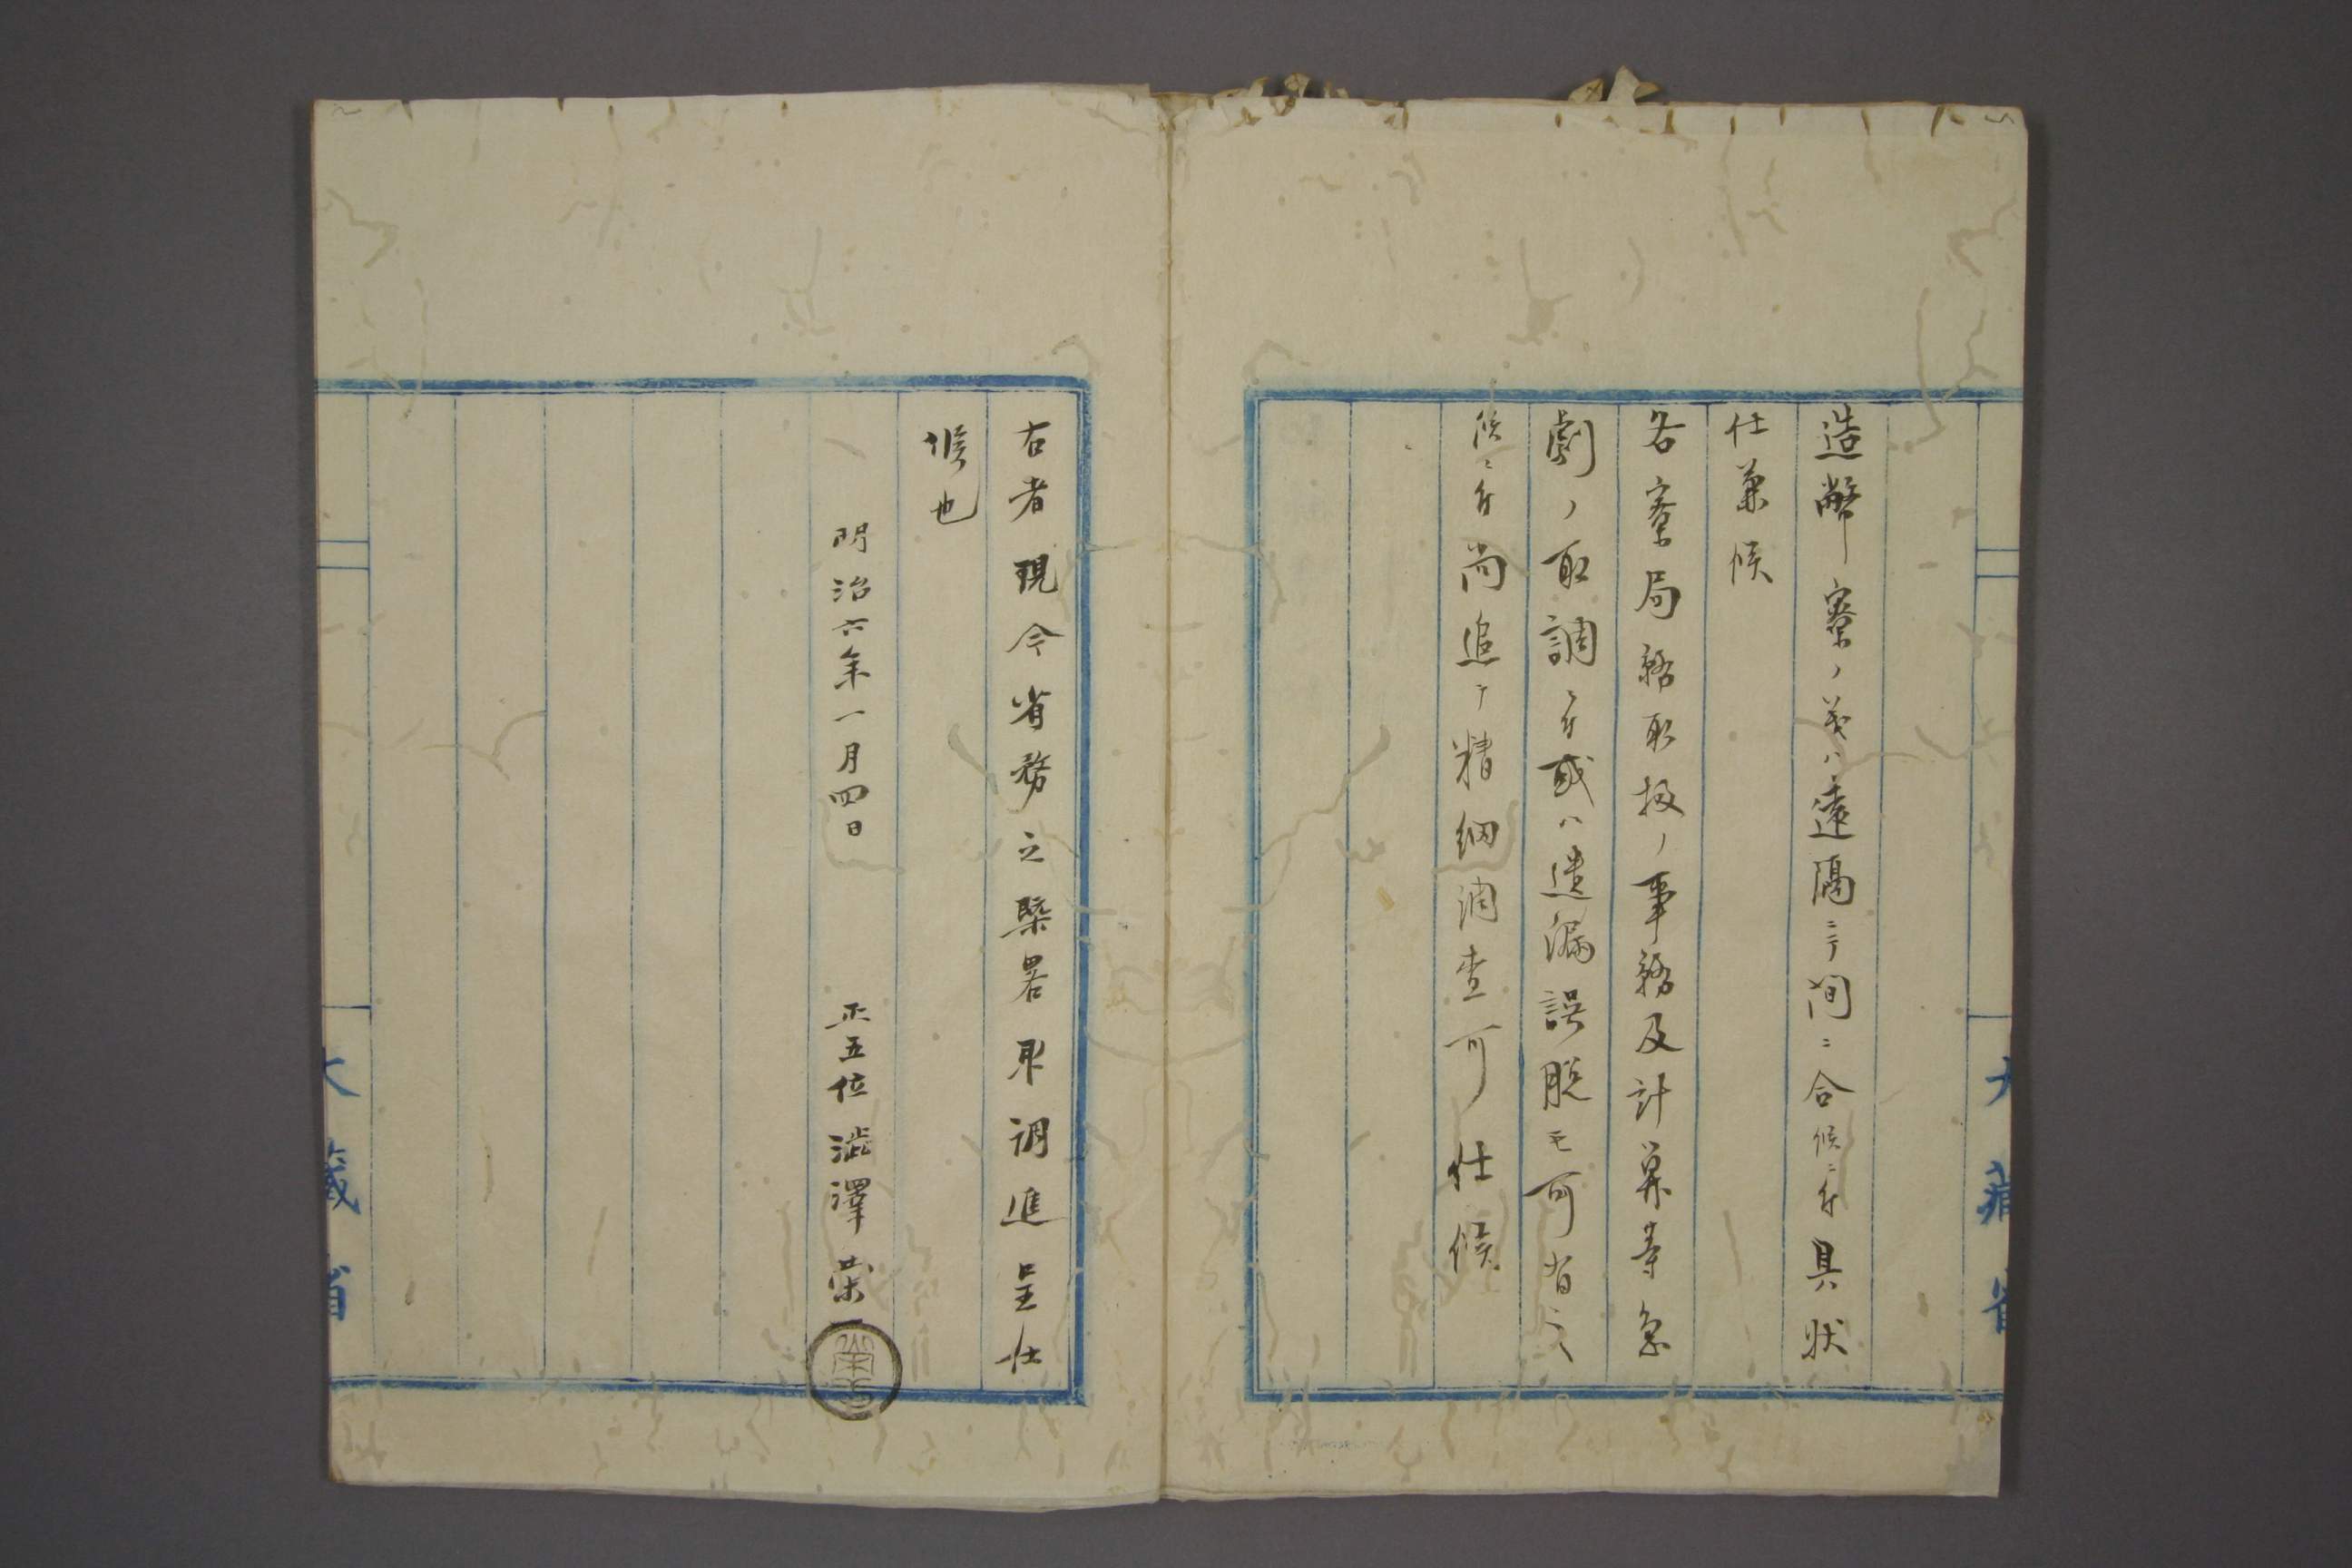 大藏省
造幣寮ノ義ハ遠隔ニテ間ニ合候ニ付具状
仕兼候
各寮局務取扱ノ事務及計算等怱
劇ノ取調ニ付或ハ遺漏誤脱モ可有之
候ニ付尚追テ精細調査可仕候
右者現今省務之槩畧取調進呈仕
候也
明治六年一月四日 正五位澁澤榮一
大藏省